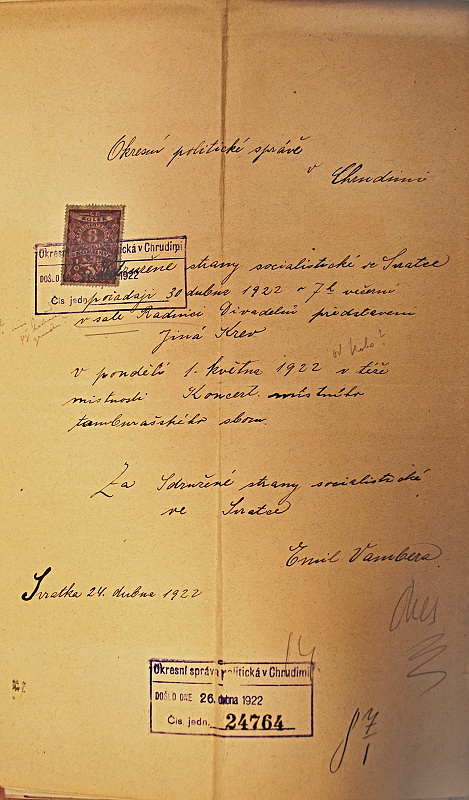 Okresní politické správě
v Chrudimi
KOLEK
8
Okresní
ká v Chrudimi
DOŠLO
1922
Čís. jedn.
Sdružené strany socialistické ve Svratce
pořádají 30 dubna 1922 o 7h večerní
v sále Radnici Divadelní představení
Jiná Krev
od koho?
v pondělí 1. května 1922 v téže
místnosti Koncert místního
tamburašského sboru.
Za Sdružené strany socialistické
ve Svratce
Emil Vambera
Svratka 24. dubna 1922
14
Okresní správa politická v Chrudimi
DOŠLO DNE 26. dubna 1922
Čís. jedn. 24764